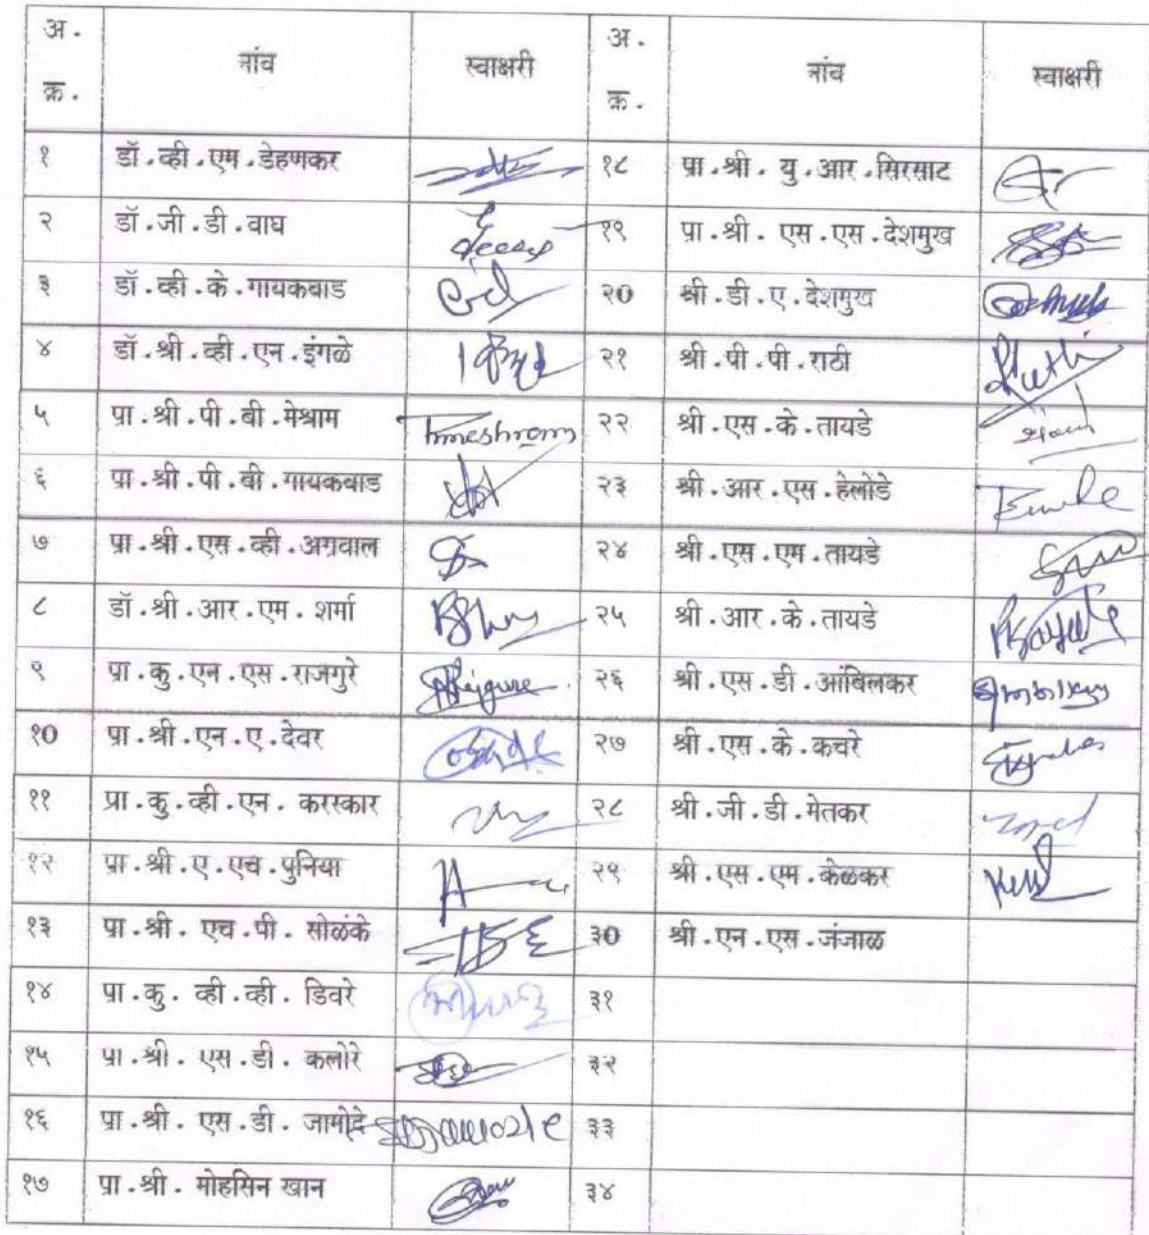 अ. क्र. नांव स्वाक्षरी अ. क्र. नांव स्वाक्षरी
१ डॉ.व्ही.एम.डेहणकर १८ प्रा.श्री. यु.आर.सिरसाट
२ डॉ.जी.डी.वाघ १९ प्रा.श्री. एस.एस.देशमुख
३ डॉ.व्ही.के.गायकवाड २० श्री.डी.ए.देशमुख
४ डॉ.श्री.व्ही.एन.इंगळे २१ श्री.पी.पी.राठी
५ प्रा.श्री.पी.बी.मेश्राम Pmeshram २२ श्री.एस.के.तायडे
६ प्रा.श्री.पी.बी.गायकवाड २३ श्री.आर.एस.हेलोडे
७ प्रा.श्री.एस.व्ही.अग्रवाल २४ श्री.एस.एम.तायडे
८ डॉ.श्री.आर.एम.शर्मा २५ श्री.आर.के.तायडे
९ प्रा.कु.एन.एस.राजगुरे २६ श्री.एस.डी.आंबिलकर
१० प्रा.श्री.एन.ए.देवर २७ श्री.एस.के.कचरे
११ प्रा.कु.व्ही.एन. करस्कार २८ श्री.जी.डी.मेतकर
१२ प्रा.श्री.ए.एच.पुनिया २९ श्री.एस.एम.केळकर
१३ प्रा.श्री. एच.पी. सोळंके ३० श्री.एन.एस.जंजाळ
१४ प्रा.कु. व्ही.व्ही. डिवरे ३१
१५ प्रा.श्री. एस.डी. कलोरे ३२
१६ प्रा.श्री. एस.डी. जामोदे ३३
१७ प्रा.श्री. मोहसिन खान ३४